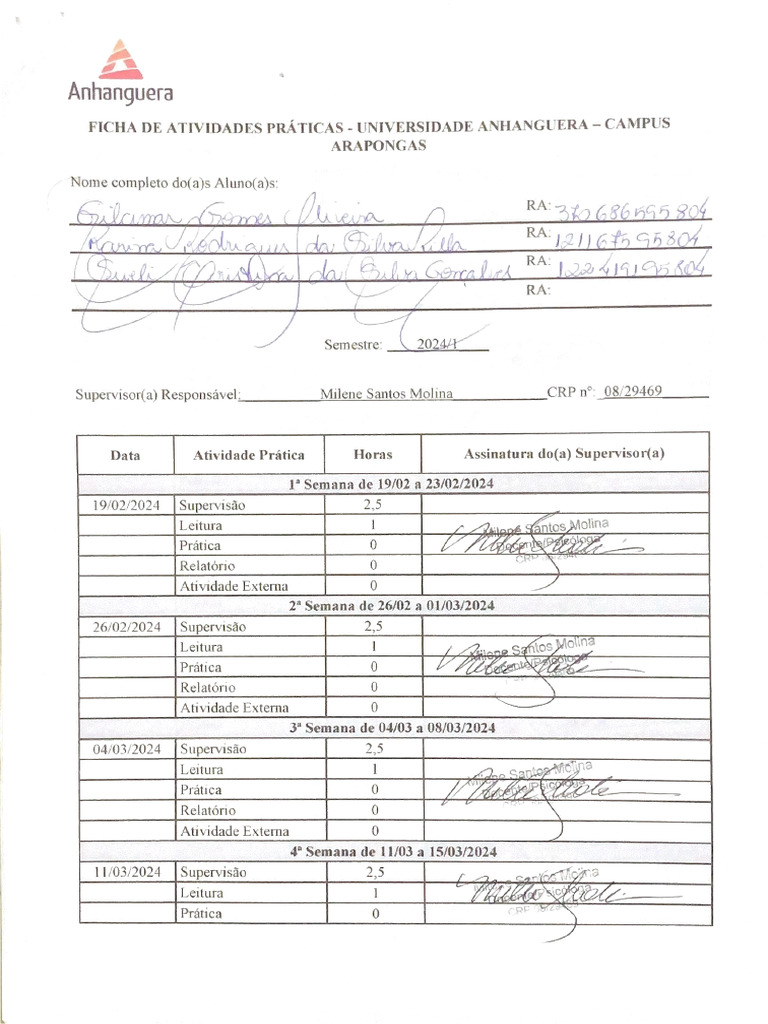 Anhanguera
FICHA DE ATIVIDADES PRÁTICAS - UNIVERSIDADE ANHANGUERA – CAMPUS
ARAPONGAS
Nome completo do(a)s Aluno(a)s:
Gilcimar Gomes Oliveira RA: 370686595804
Karina Rodrigues da Silva RA: 121167595804
Sueli Cristina da Silva Gonçalves RA: 122419195804
RA:
Semestre: 2024/1
Supervisor(a) Responsável: Milene Santos Molina CRP nº: 08/29469
Data Atividade Prática Horas Assinatura do(a) Supervisor(a)
1ª Semana de 19/02 a 23/02/2024
19/02/2024 Supervisão 2,5
Leitura 1 Milene Santos Molina
Prática 0 Docente/Psicóloga
Relatório 0 CRP
Atividade Externa 0
2ª Semana de 26/02 a 01/03/2024
26/02/2024 Supervisão 2,5
Leitura 1 Milene Santos Molina
Prática 0 Docente/Psicóloga
Relatório 0
Atividade Externa 0
3ª Semana de 04/03 a 08/03/2024
04/03/2024 Supervisão 2,5
Leitura 1 Milene Santos Molina
Prática 0 Docente/Psicóloga
Relatório 0
Atividade Externa 0
4ª Semana de 11/03 a 15/03/2024
11/03/2024 Supervisão 2,5 Milene Santos Molina
Leitura 1 Docente/Psicóloga
Prática 0 CRP 08/29469